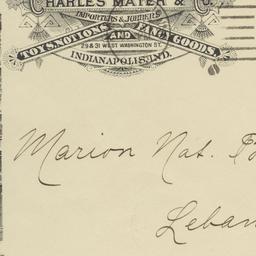 CHARLES MAYER & Co.
IMPORTERS & JOBBERS
TOYS, NOTIONS AND FANCY GOODS.
29 & 31 WEST WASHINGTON ST.
INDIANAPOLIS, IND.
Marion Nat.
Leban